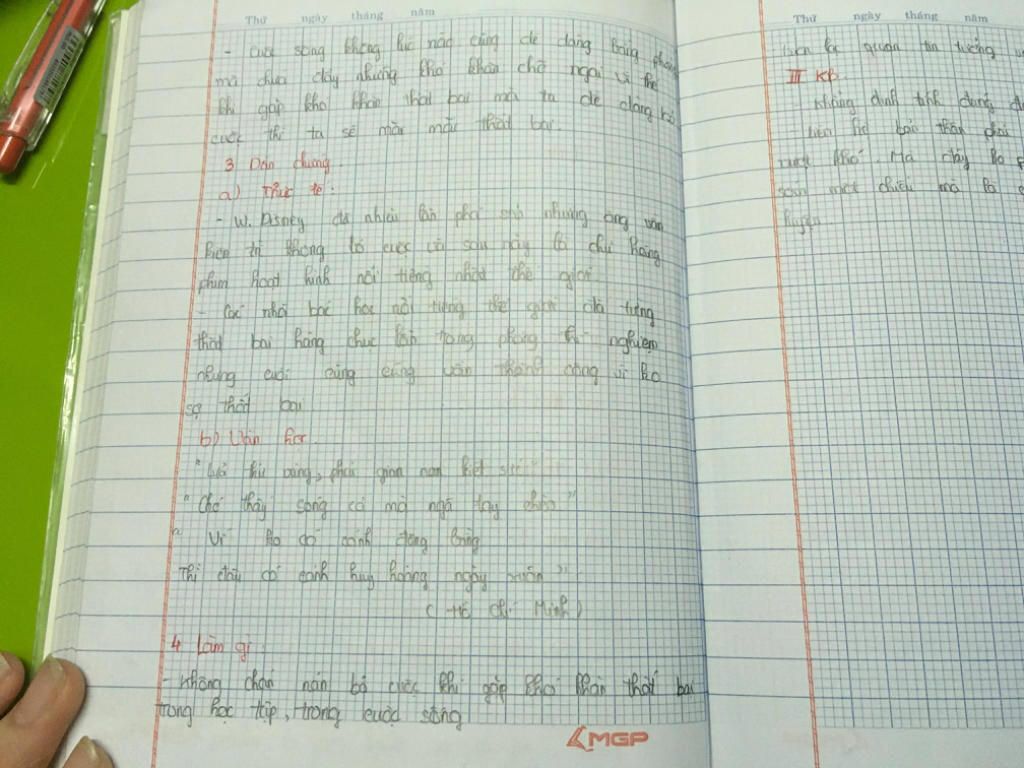 Thứ ngày tháng năm
- Cuộc sống không lúc nào cũng dễ dàng bằng phẳng
mà chứa đầy những khó khăn chờ ngại vì thế
khi gặp khó khăn thất bại mà ta dễ dàng bỏ
cuộc thì ta sẽ mãi mãi thất bại.
3 Dẫn chứng.
a) Thực tế:
- W. Disney đã nhiều lần phá sản nhưng ông vẫn
kiên trì không bỏ cuộc và sau này là chủ hãng
phim hoạt hình nổi tiếng nhất thế giới.
- Các nhà bác học nổi tiếng thế giới đã từng
thất bại hàng chục lần trong phòng thí nghiệm
nhưng cuối cùng cũng vẫn thành công vì ko
sợ thất bại
b) Văn học.
"Lửa thử vàng, phải gian nan sức"
"Chớ thấy sóng cả mà ngã tay chèo"
" Ví ko có cảnh đông
Thì đâu có cảnh huy hoàng ngày xuân"
( Hồ Chí Minh )
4 Làm gì
- Không chán nản bỏ cuộc khi gặp khó khăn thất bại
trong học tập, trong cuộc sống
MGP
Thứ ngày tháng năm
lạc quan tin tưởng
III KB.
- Khẳng định tính đúng
- Liên hệ bản thân phải
vượt khó. Mà đây ko
một chiều mà là
luyện